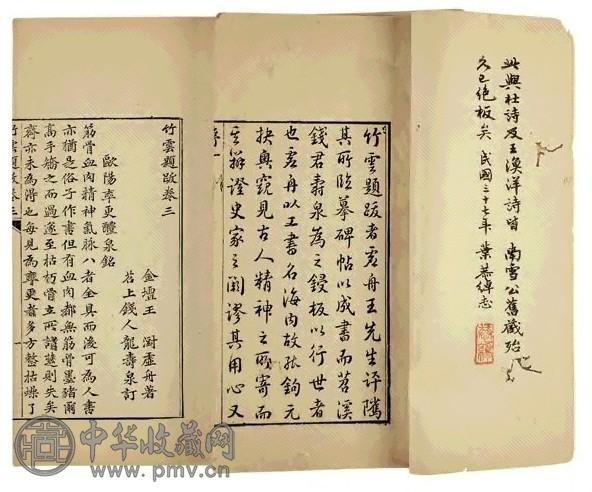 此與杜詩及王漁洋詩皆 南雪公舊藏殆
久已絕板矣 民國三十七年 葉恭綽志
竹雲題跋者虛舟王先生評隲
其所臨摹碑帖以成書而苕溪
錢君壽泉為之鋟板以行世者
也虛舟以工書名海内故能鉤元
抉奧窺見古人精神之所寄而
其辨證史家之闕謬其用心又
序一
竹雲題跋卷三
金壇王 澍虛舟著
苕上錢人龍壽泉訂
歐陽率更醴泉銘
筋骨血肉精神氣脉八者全具而後可為人書
亦猶是俗子作書但有血肉都無筋骨墨豬爾
高手矯之而過遂至枯朽骨立所謂楚則失矣
齊亦未為得也每見為率更書者多方整枯燥了
竹雲題跋卷三
中华收藏网
www.pmv.cn